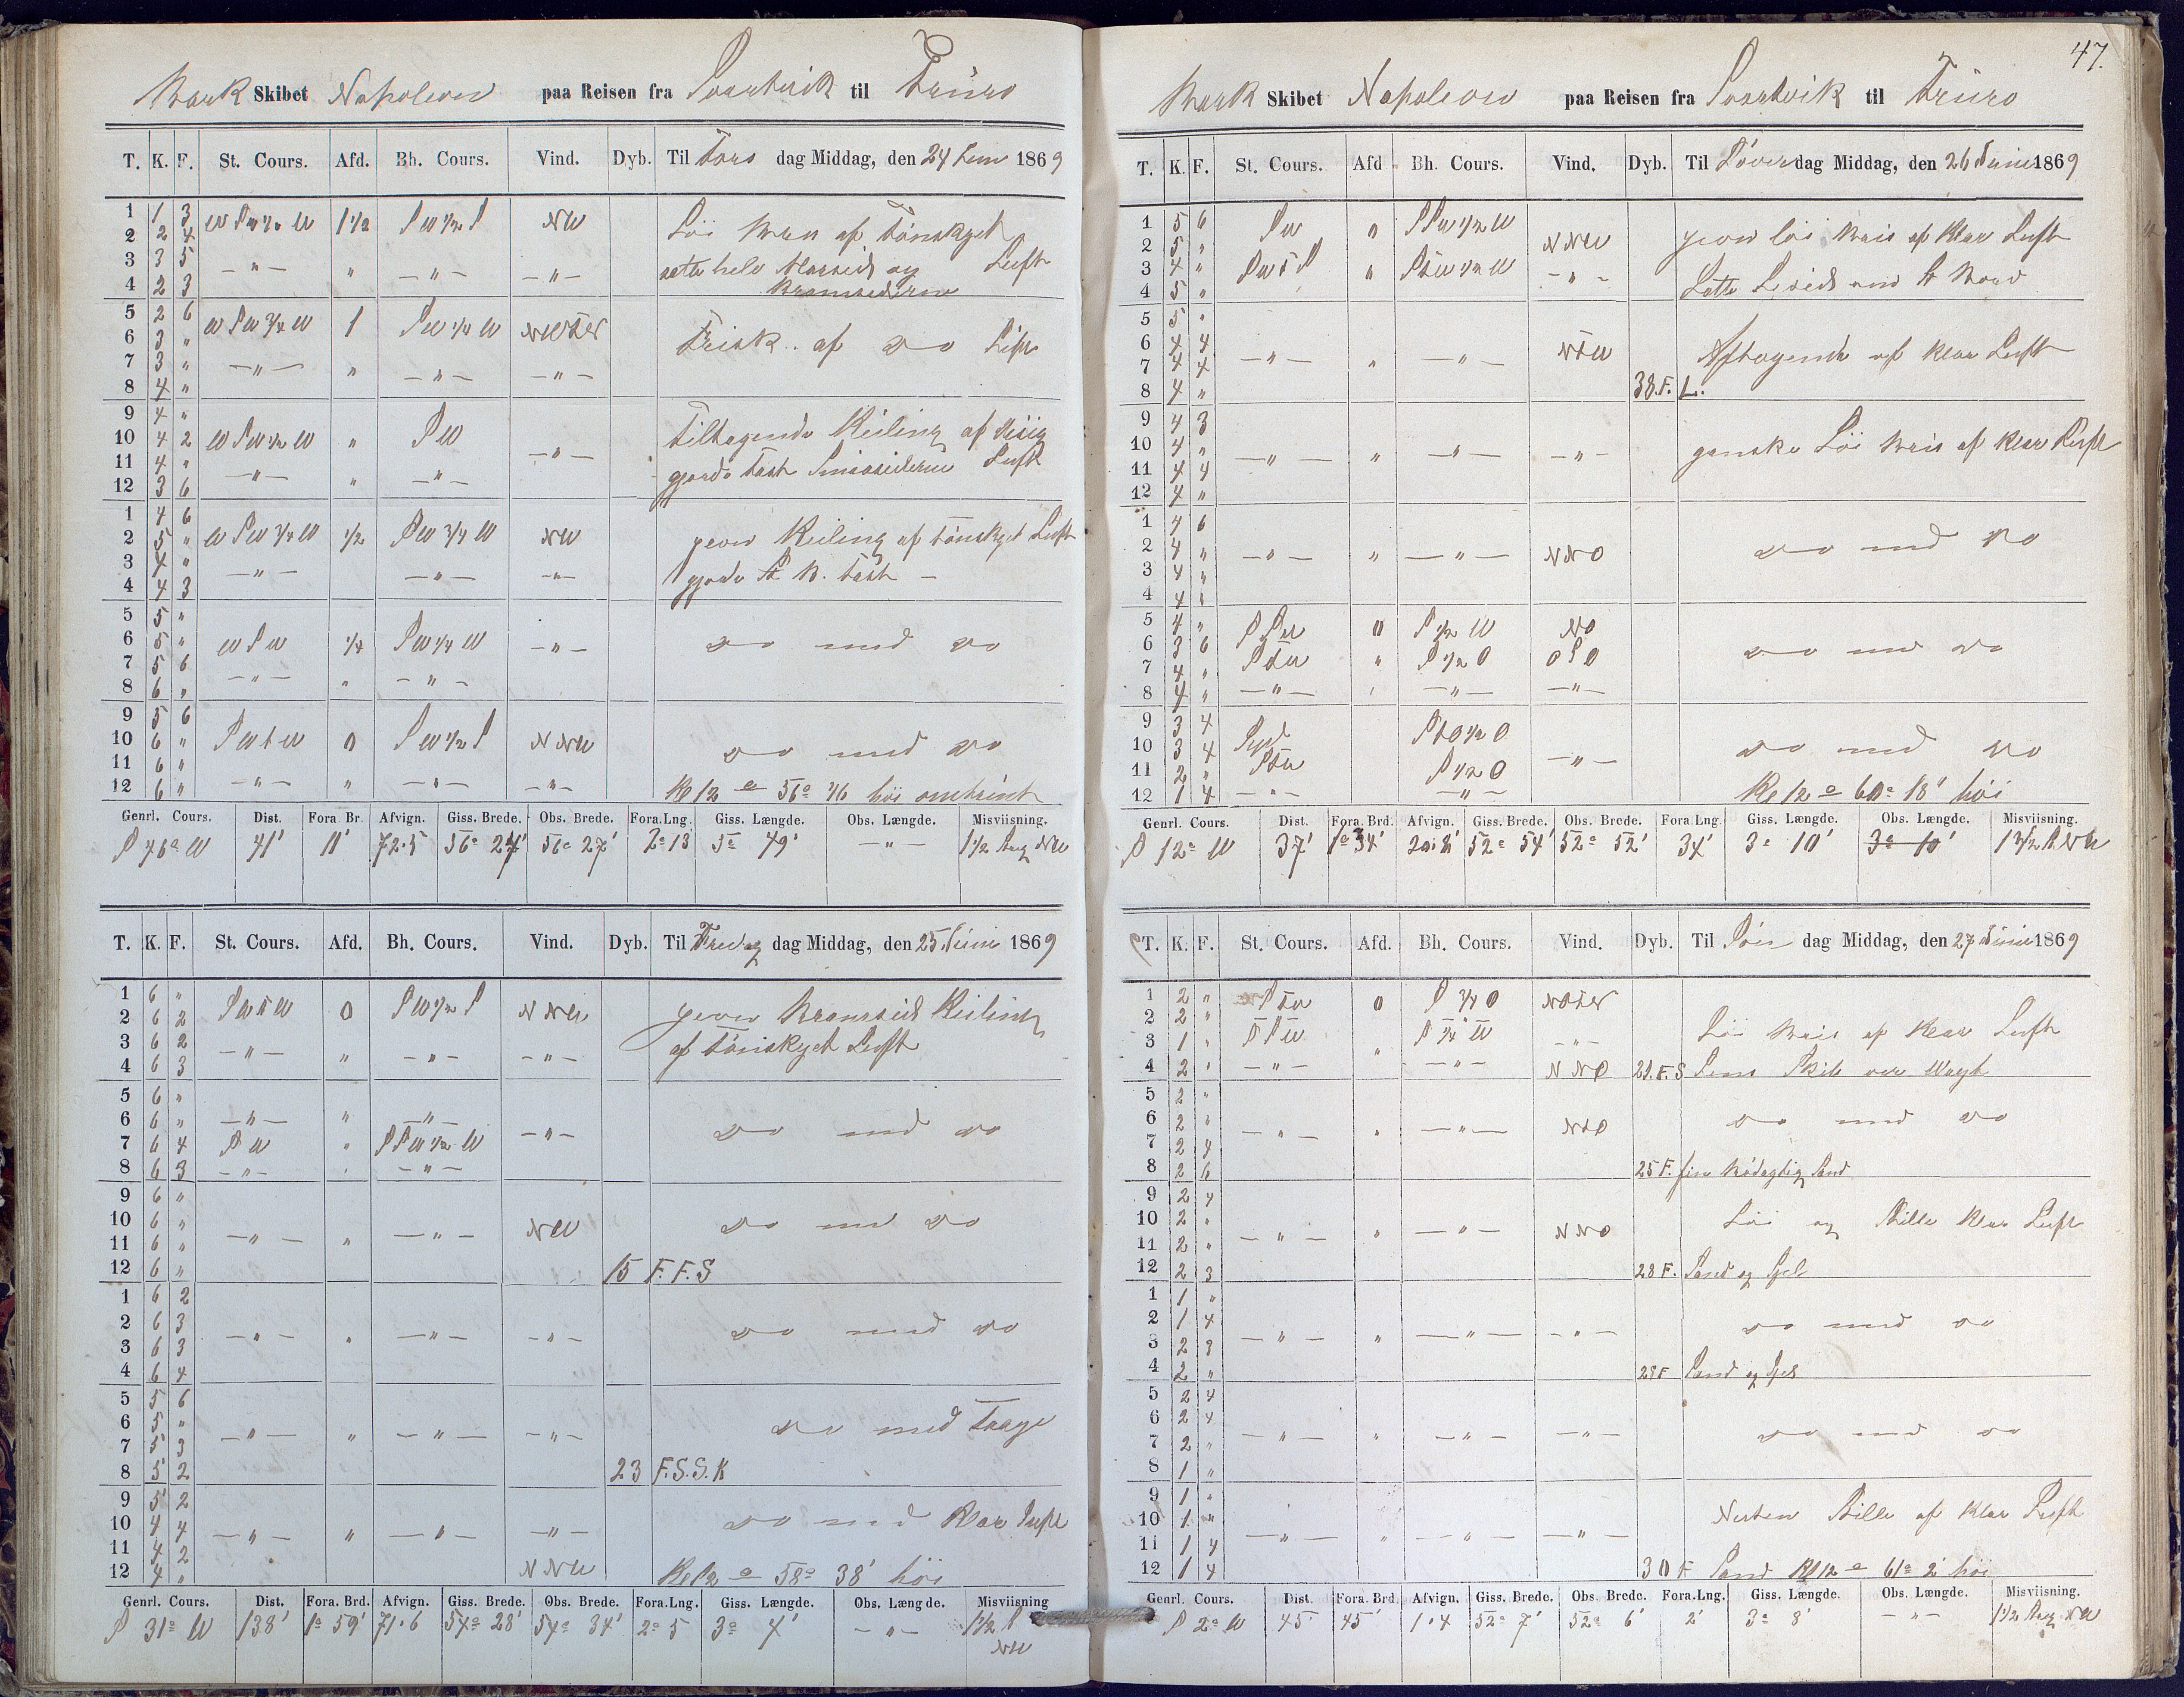 47.
Bark Skibet Napoleon paa Reisen fra Svartvik til Trüro
T. K. F. St. Cours. Afd. Bh. Cours. Vind. Dyb. Til Tors dag Middag, den 24 Juni 1869
1 1 3 W S W ½ W 1½ S W ½ S NW Löi Bris af Tönskyet
2 2 4
3 3 5 — " — " — " — — " — satte hele Mersseil og Luft
4 2 3 Bramseilerne
5 2 6 W S W ¾ W 1 S W ¼ W NWTW
6 3 " Frisk af do Luft
7 3 " — " — " — " — — " —
8 4 "
9 4 " Tiltagende Kuling af disig
10 4 2 W S W ½ W " S W — " —
11 4 " — " — " — " — gjorde fast Smaaseilerne Luft
12 3 6
1 4 6
2 5 " W S W ¾ W ½ S W ¾ W NW jevn Kuling af tönskyet Luft
3 4 " — " — — " — — " — gjorde St. B. fast —
4 4 3
5 5 "
6 5 " W S W ¼ S W ¼ W — " — do med do
7 5 6 — " — " — " —
8 6 "
9 5 6
10 6 " S W t W 0 S W ½ S N NW do med do
11 6 "
12 6 " — " — " — " — — " — Kl 12 = 56° 46 höi omtrent
Genrl. Cours. Dist. Fora Br. Afvign. Giss. Brede. Obs. Brede. Fora.Lng. Giss. Længde. Obs. Længde. Misviisning.
S 76° W 41' 11' 72.5 56° 27' 56° 27' 2° 13 5° 49' — " — 1½ Streg NW
T. K. F. St. Cours. Afd. Bh. Cours. Vind. Dyb. Til Fredag dag Middag, den 25 Juni 1869
1 6 " S W t W 0 S W ½ S N NW jevn Bramseils Kuling
2 6 2
3 6 2 — " — " — " — — " — af tönskyet Luft
4 6 3
5 6 "
6 6 " — " — " — " — — " — do med do
7 6 4 S W " S S W ½ W
8 6 3 — " — " — " —
9 6 "
10 6 " NW do med do
11 6 " — " — " — " —
12 6 " 15 F. F. S
1 6 2
2 6 3 do med do
3 6 3 — " — " — " — — " —
4 6 4
5 5 6
6 5 " do med Taage
7 5 3 — " — " — " — — " —
8 5 2 23 F. S. S. K
9 5 2
10 4 4 — " — " — " — — " — do med Klar Luft
11 4 2
12 4 " N NW Kl 12 = 58° 38' höi
Genrl. Cours. Dist. Fora. Brd. Afvign. Giss. Brede. Obs. Brede. Fora.Lng. Giss. Længde. Obs. Længde. Misviisning
S 31° W 138' 1° 59' 71.6 54° 28' 54° 34' 2° 5 3° 4' — " — 1½ S NW
Bark Skibet Napoleon paa Reisen fra Svartvik til Trüro
T. K. F. St. Cours. Afd Bh. Cours. Vind. Dyb. Til Löver dag Middag, den 26 Juni 1869
1 5 6 S W 0 S S W ½ W N NW jevn löi Bris af klar Luft
2 5 "
3 4 " S W t S " S t W ½ W — " —
4 5 " Satte Læseil om St Bord
5 5 "
6 4 4 — " — " — " — NTW Aftagende af klar Luft
7 4 4
8 4 " 38. F. L.
9 4 3
10 4 " — " — " — " — — " — ganske Löi Bris af klar Luft
11 4 4
12 4 "
1 4 6
2 4 " — " — " — " — N NO do med do
3 4 "
4 4 "
5 4 " S S W 0 S ½ W NO
6 3 6 S t W " S ½ O O S O do med do
7 4 "
8 4 " — " — " — " — — " —
9 3 4 Syd S t O ½ O
10 3 4 S t W S ½ O — " — do med do
11 2 "
12 1 4 — " — — " — Kl 12 = 60° 18' höi
Genrl. Cours. Dist. Fora. Brd. Afvign. Giss. Brede. Obs. Brede. Fora Lng. Giss. Længde. Obs. Længde. Misviisning.
S 12° W 37' 1° 34' 52° 54' 52° 52' 34' 3° 10' 3° 10' 1½ S NW
T. K. F. St. Cours. Afd. Bh. Cours. Vind. Dyb. Til Sön dag Middag, den 27 Juni 1869
1 2 " S t W 0 S ¾ O NOTN
2 2 " S S W S ¼ W Löi Bris af klar Luft
3 1 " — " —
4 2 " — " — — " — N NO 21. F. S Lens Skib ved Vagt
5 2 "
6 2 " — " — " — " — NTO do med do
7 2 4
8 2 6 25 F. fin Sand
9 2 4
10 2 " — " — " — " — N NO Löi og Stille klar Luft
11 2 "
12 2 3 28 F. Sand og Sjel
1 1 "
2 1 4 — " — " — " — — " — do med do
3 2 3
4 2 " 28 F Sand og Sjel
5 2 4
6 2 4 — " — " — " — — " — do med do
7 2 "
8 1 "
9 1 "
10 1 " — " — " — " — — " — Næsten Stille af klar Luft
11 1 4
12 1 4 30 F Sand Kl 12 = 61° 2' höi
Genrl. Cours. Dist. Fora. Brd. Afvign. Giss. Brede. Obs. Brede. Fora.Lng. Giss. Længde. Obs. Længde. Misviisning.
S 2° W 45' 45' 1.4 52° 7' 52° 6' 2' 3° 8' — " — 1½ Streg NW